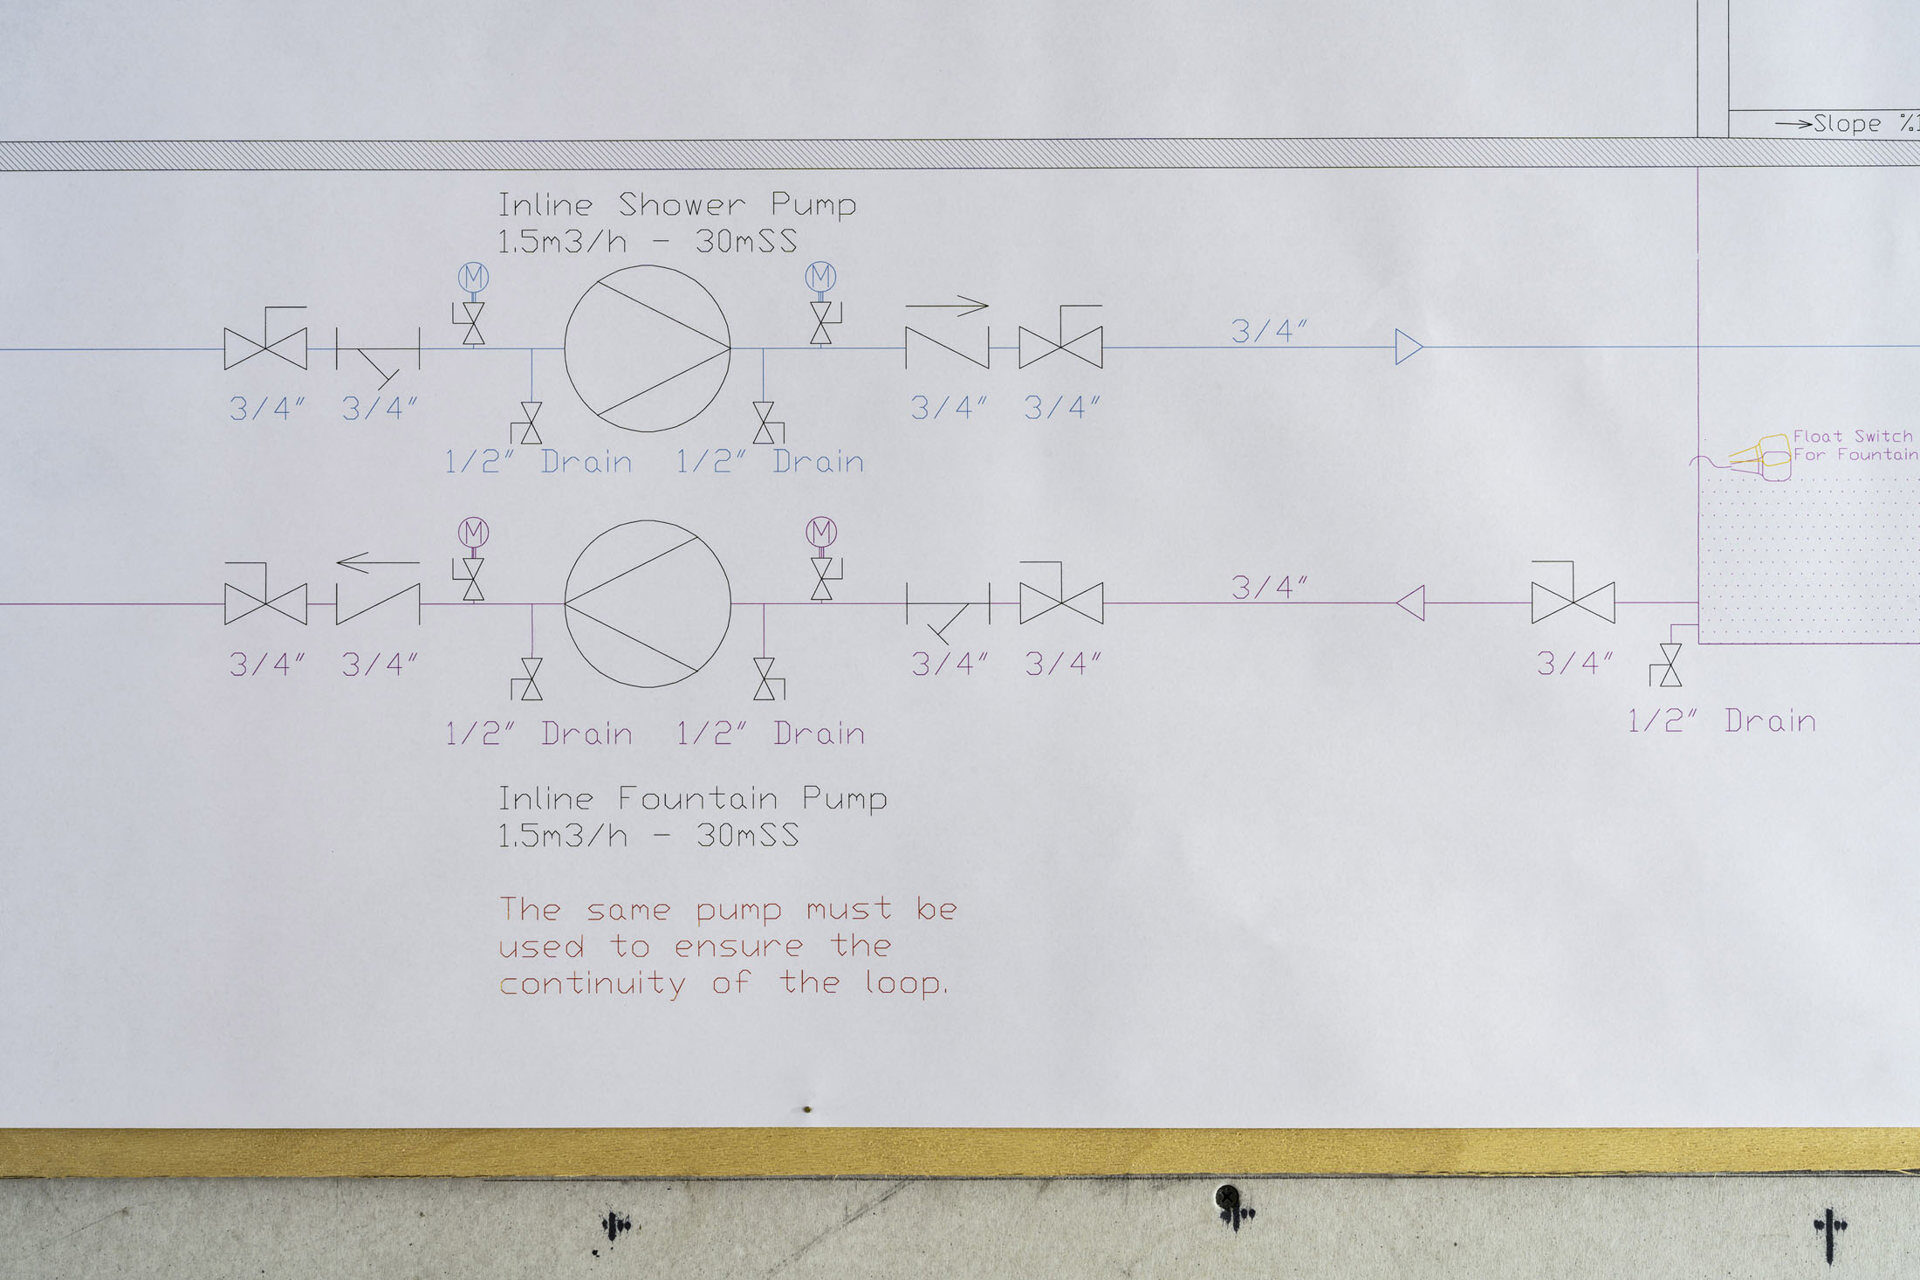 Slope %1
Inline Shower Pump
1.5m3/h - 30mSS
M
M
3/4"
3/4"
3/4"
3/4"
3/4"
1/2" Drain
1/2" Drain
Float Switch
For Fountain
M
M
3/4"
3/4"
3/4"
3/4"
3/4"
3/4"
1/2" Drain
1/2" Drain
1/2" Drain
Inline Fountain Pump
1.5m3/h - 30mSS
The same pump must be
used to ensure the
continuity of the loop.